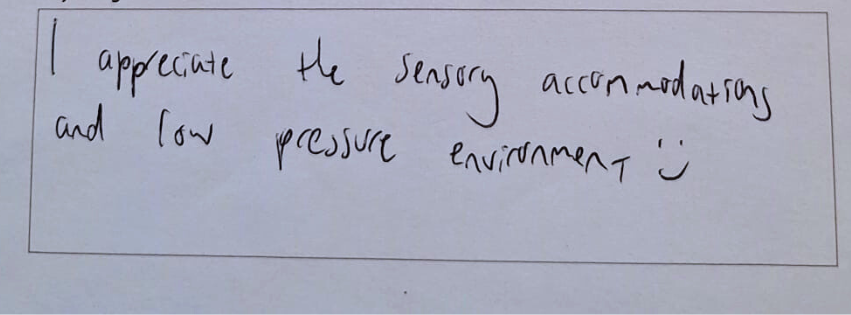 I appreciate the sensory accommodations
and low pressure environment :)